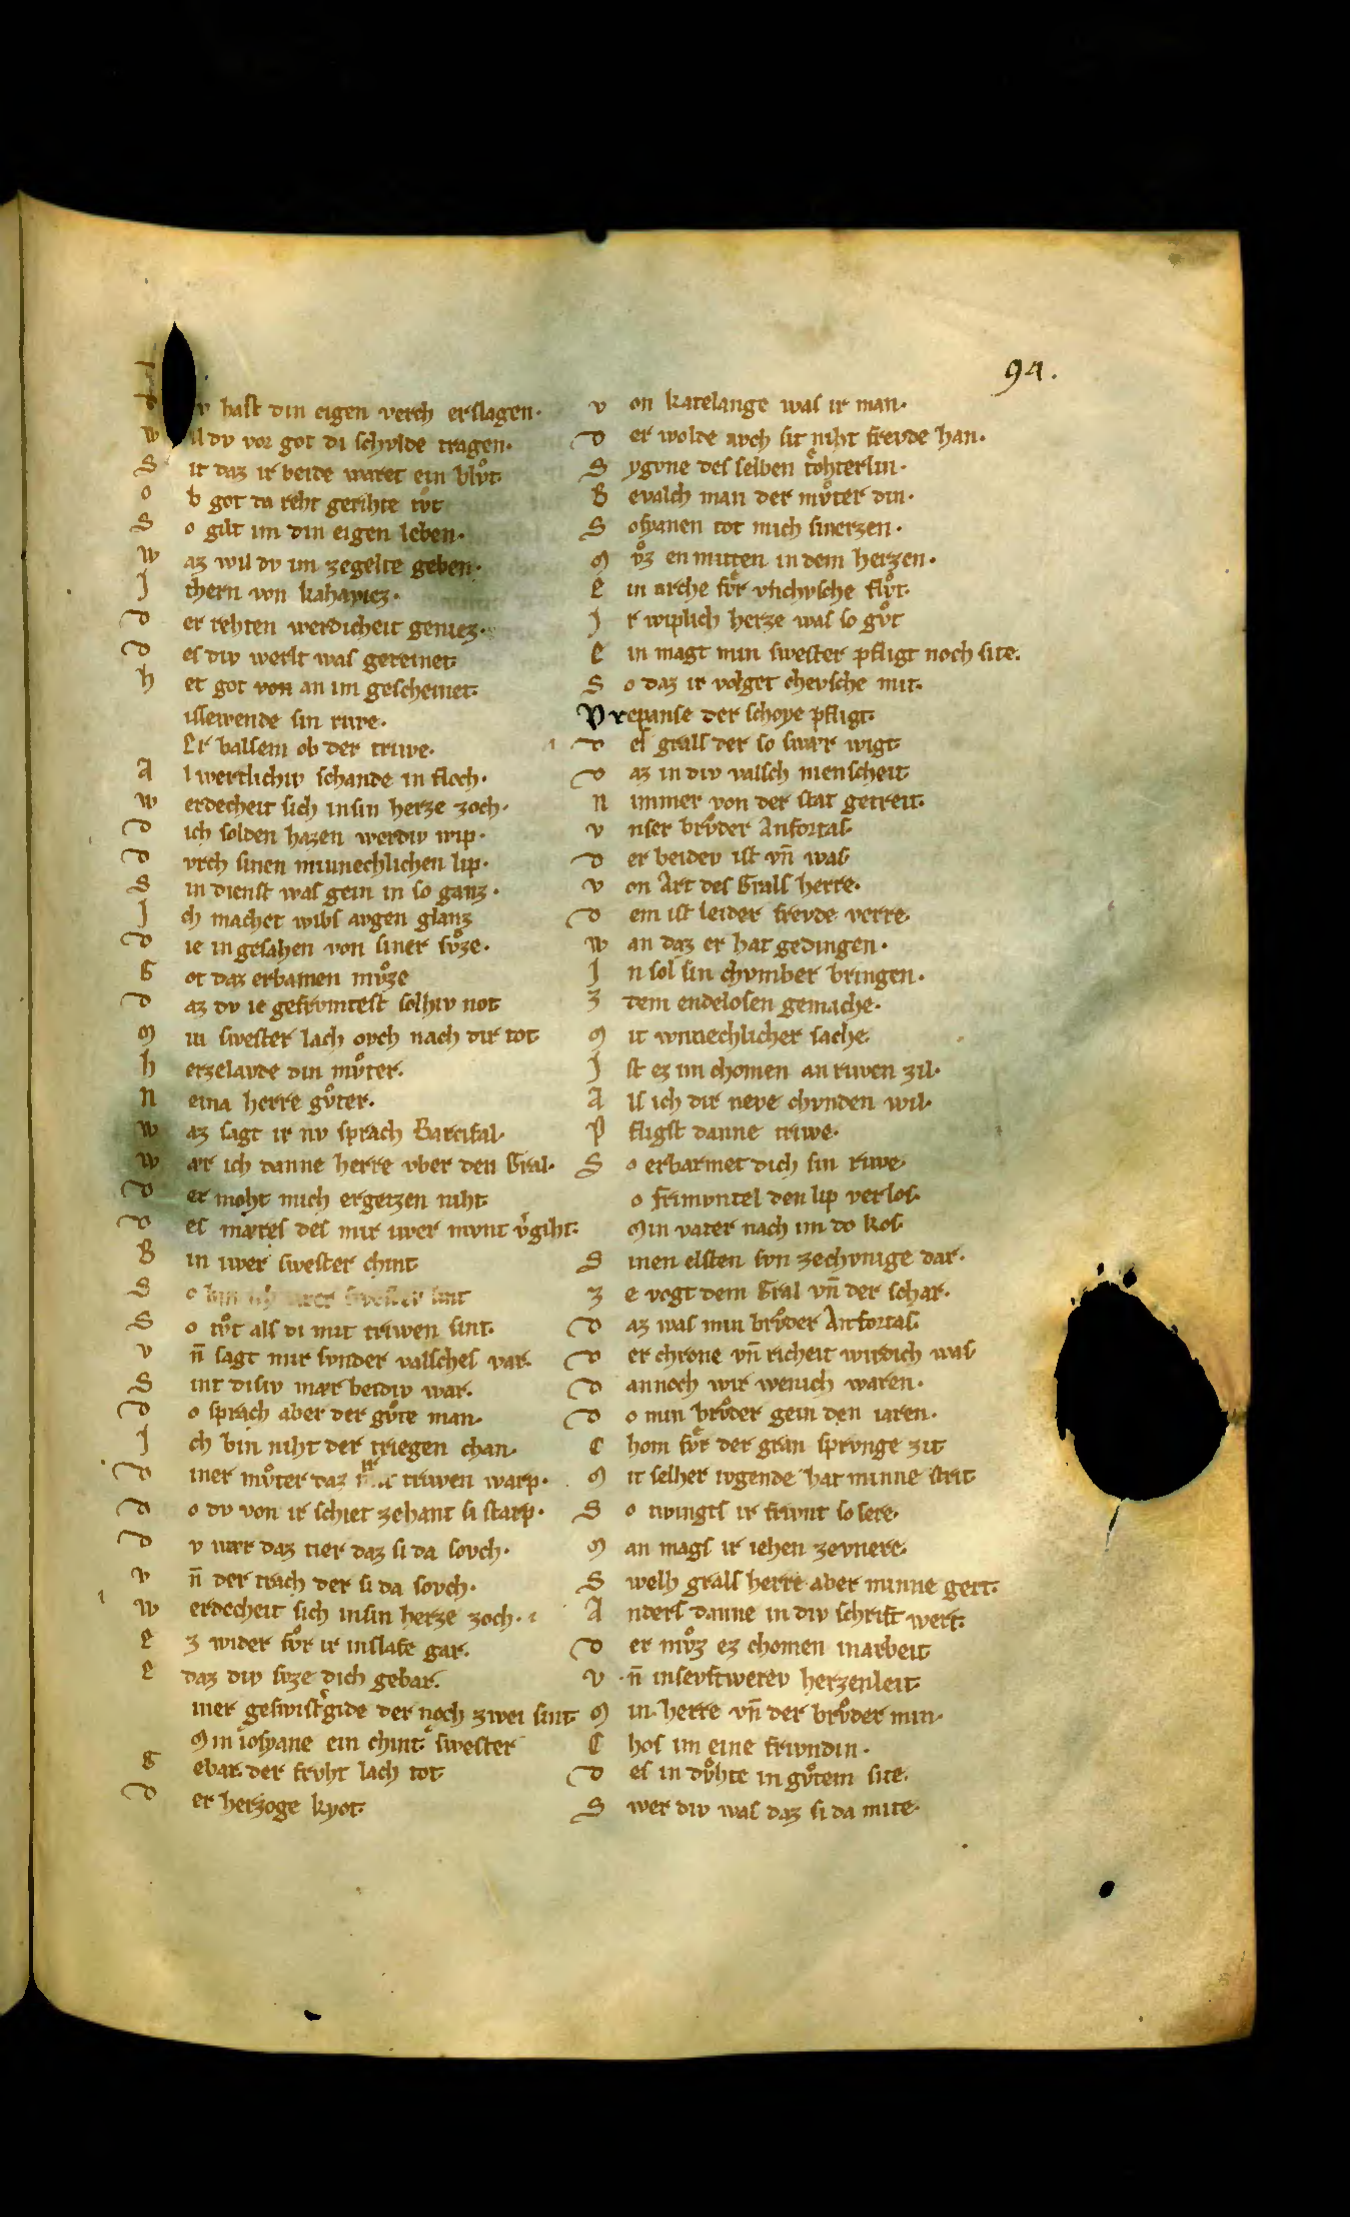 94.
v haſt din eigen verch erſlagen·
wil dv vor got di ſchvlde tragen·
S it daz ir beide waret ein blv̊t·
o b got da reht gerihte tv̊t
S o gilt im din eigen leben·
w az wil dv im zegelte geben·
J thern von kahaviez·
d er rehten werdicheit geniez·
d eſ div werlt waſ gereinet·
h et got von an im geſcheinet·
iſſewende ſin rwe·
Er balſem ob der triwe·
A l wertlichiv ſchande in floch·
w erdecheit ſich inſin herze zoch·
d ich ſolden hazen werdiv wip·
d vrch ſinen minnechlichen lip·
S in dienſt waſ gein in ſo ganz·
J ch machet wibſ avgen glanz
d ie in geſahen von ſiner ſv̊ze·
G ot daz erbamen mv̊ze
d az dv ie gefrvmteſt ſolhiv not
M in ſweſter lach ovch nach dir tot
h erzelavde din mv̊ter·
N eina herre gv̊ter·
w az ſagt ir nv ſprach Parcifal·
w ær ich danne herre vber den Gral·
d er moht mich ergetzen niht
d eſ mæreſ deſ mir iwer mvnt v̓giht·
B in iwer ſweſter chint
S o bin ich iwer ſweſter ſint
S o tv̊t alſ di mit triwen ſint·
v n̄ ſagt mir ſvnder valſcheſ var·
S int diſiv mær beidiv war·
d o ſprach aber der gv̊te man·
J ch bin niht der triegen chan·
d iner mv̊ter daz ir triwen warp·
d o dv von ir ſchiet zehant ſi ſtarp·
d v wær daz tier daz ſi da ſovch·
v n̄ der trach der ſi da ſovch·
w erdecheit ſich inſin herze zoch·
E z wider fv̊r ir inſlafe gar·
E daz div ſvze dich gebar·
iner geſwiſt̓gide der noch zwei ſint
Min ioſyane ein chint ſweſter
G ebar· der frvht lach tot
d er herzoge kyot·
v on katelange waſ ir man·
d er wolde avch ſit niht frevde han·
S ygvne deſ ſelben tohterlin·
B evalch man der mv̊ter din·
S oſyanen tot mich ſmerzen·
M v̊z en mitten in dem herzen·
E in arche fv̊r vnchvſche flv̊t·
J r wiplich herze waſ ſo gv̊t
E in magt min ſweſter pfligt noch ſite·
S o daz ir volget chevſche mit·
Vrepanſe der ſchoye pfligt·
d eſ gralſ der ſo ſwær wigt
d az in div valſch menſcheit
N immer von der ſtat getreit·
v nſer brv̊der Anfortaſ
d er beidev iſt vn̄ waſ
v on Art deſ Gralſ herre·
d em iſt leider frevde verre·
w an daz er hat gedingen·
J n ſol ſin chvmber bringen·
Z dem endeloſen gemache·
M it wnnechlicher ſache
J ſt ez im chomen an riwen zil·
A lſ ich dir neve chvnden wil·
P fligſt danne triwe·
S o erbarmet dich ſin riwe·
o frimvntel den lip verloſ·
Min vater nach im do koſ·
S inen elſten ſvn zechvnige dar·
Z e vogt dem Gral vn̄ der ſchar·
d az waſ min brv̊der Anfortaſ
d er chrone vn̄ richeit wirdich waſ
d annoch wir wenich waren·
d o min brv̊der gein den iaren·
C hom fv̊r der gran ſprvnge zit
M it ſelher ivgende hat minne ſtrit
S o twingtſ ir frivnt ſo ſere·
M an magſ ir iehen zevnere·
S welh gralſ herre aber minne gert·
A nderſ danne in div ſchrift wert·
d er mv̊z ez chomen inarbeit
V n̄ inſevftwerev herzenleit·
M in herre vn̄ der brv̊der min·
C hoſ im eine frivndin·
d eſ in dv̊hte in gv̊tem ſite·
S wer div waſ daz ſi da mite·